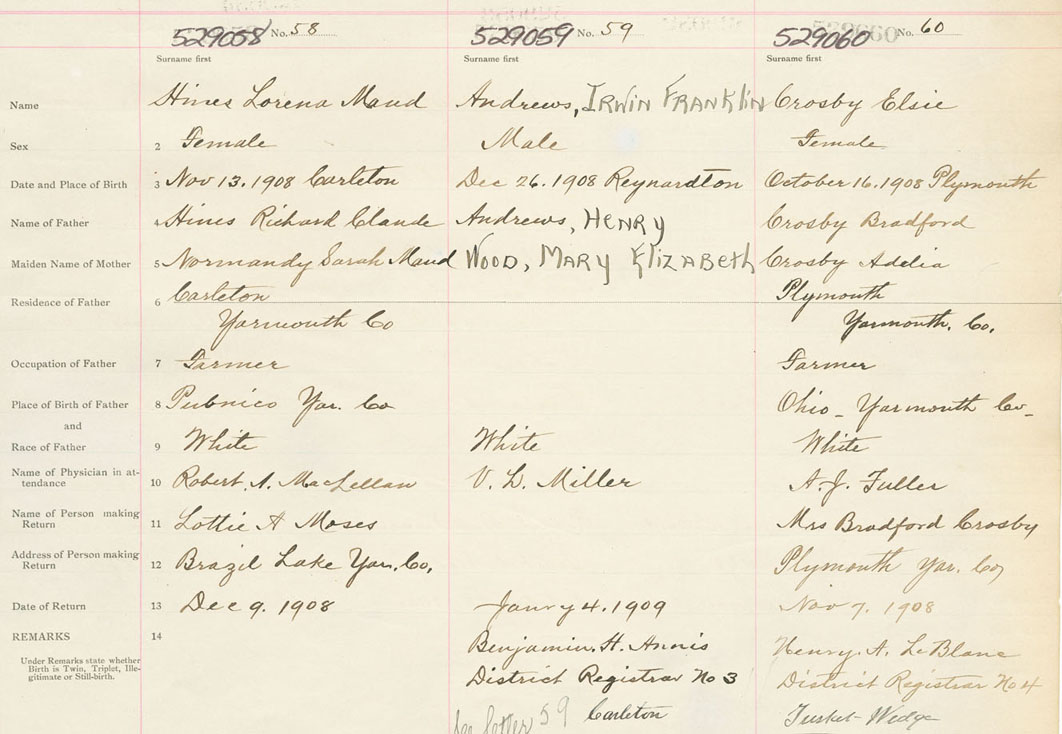 529058 No. 58 529059 No. 59 529060 No. 60
Surname first Surname first Surname first
Name Hines Lorena Maud Andrews, IRWIN FRANKlin Crosby Elsie
Sex 2 Female Male Female
Date and Place of Birth 3 Nov 13. 1908 Carleton Dec 26. 1908 Reynardton October 16. 1908 Plymouth
Name of Father 4 Hines Richard Claude Andrews, HENRY Crosby Bradford
Maiden Name of Mother 5 Normandy Sarah Maud WOOD, MARY ElizABeth Crosby Adelia
Residence of Father 6 Carleton Plymouth
Yarmouth Co Yarmouth. Co.
Occupation of Father 7 Farmer Farmer
Place of Birth of Father 8 Pubnico Yar. Co Ohio - Yarmouth Co -
and
Race of Father 9 White White White
Name of Physician in at-
tendance 10 Robert. A. MacLellan V. D. Miller A. J. Fuller
Name of Person making
Return 11 Lottie A Moses Mrs Bradford Crosby
Address of Person making
Return 12 Brazil Lake Yar. Co. Plymouth Yar. Co
Date of Return 13 Dec 9. 1908 Janry 4. 1909 Nov 7. 1908
REMARKS 14 Benjamin. H. Annis Henry. A. LeBlanc
Under Remarks state whether
Birth is Twin, Triplet, Ille-
gitimate or Still-birth.
District Registrar No 3 District Registrar No 4
See letter 59 Carleton Tusket-Wedge